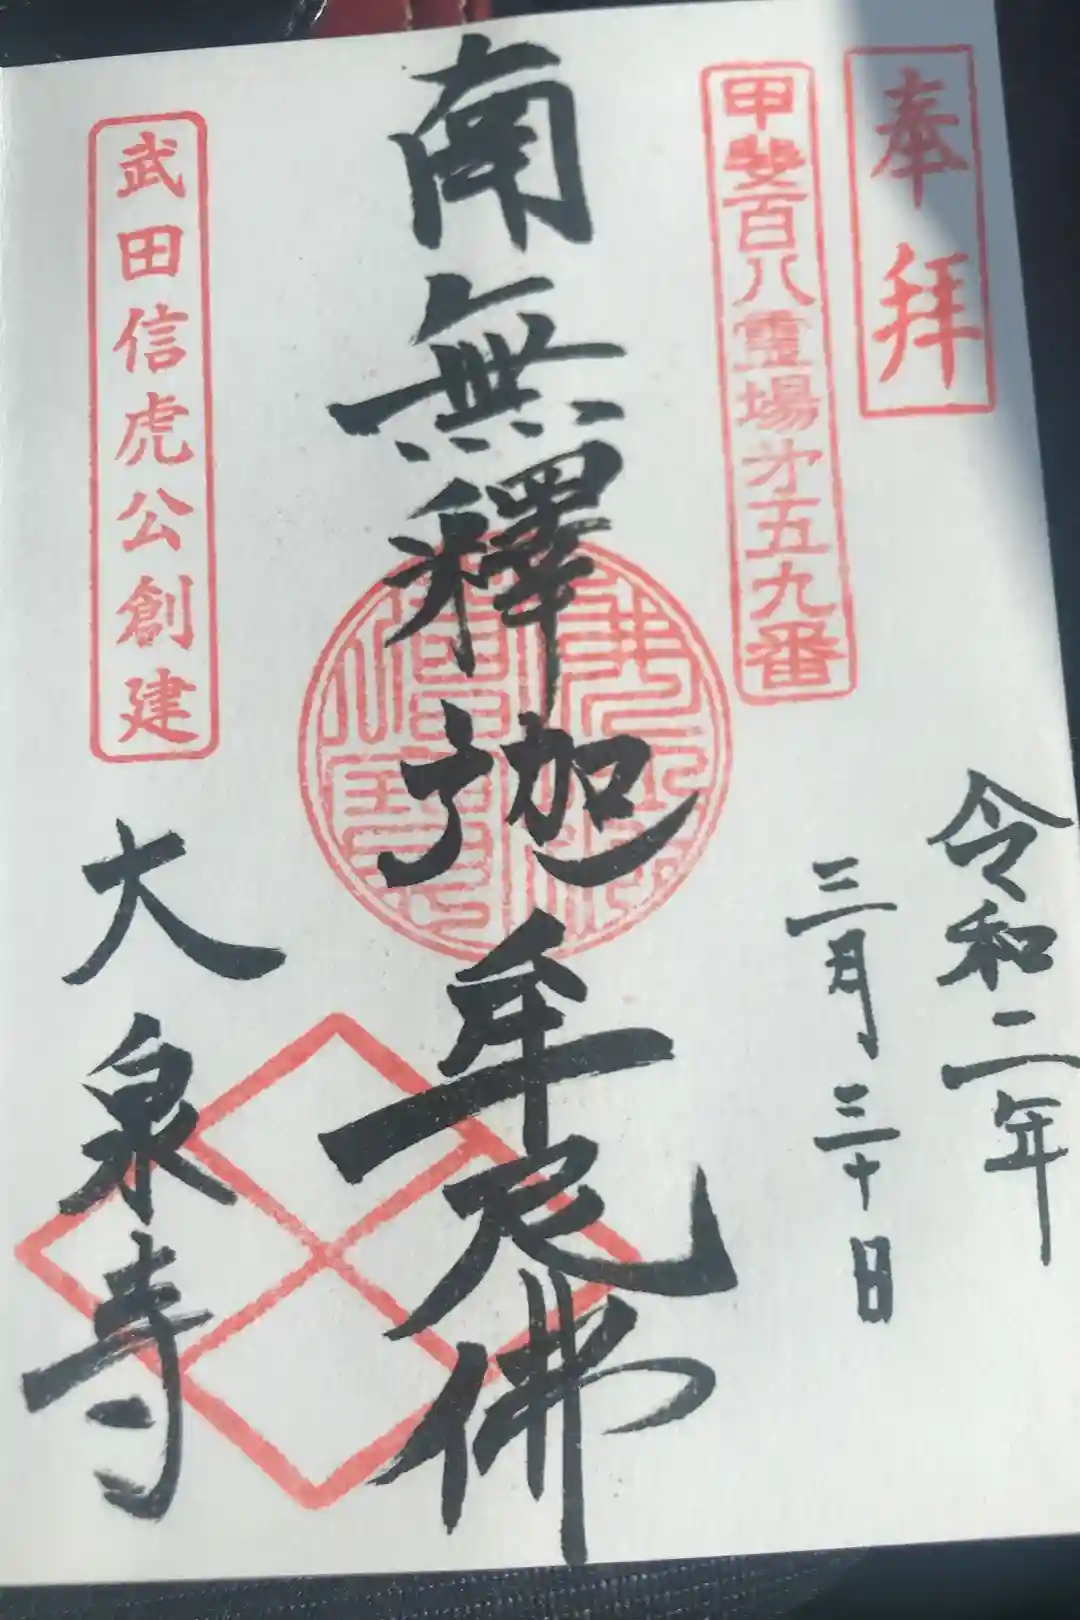 奉拝
甲斐百八霊場㐧五九番
令和二年
三月三十日
南無釋迦牟尼佛
武田信虎公創建
大泉寺